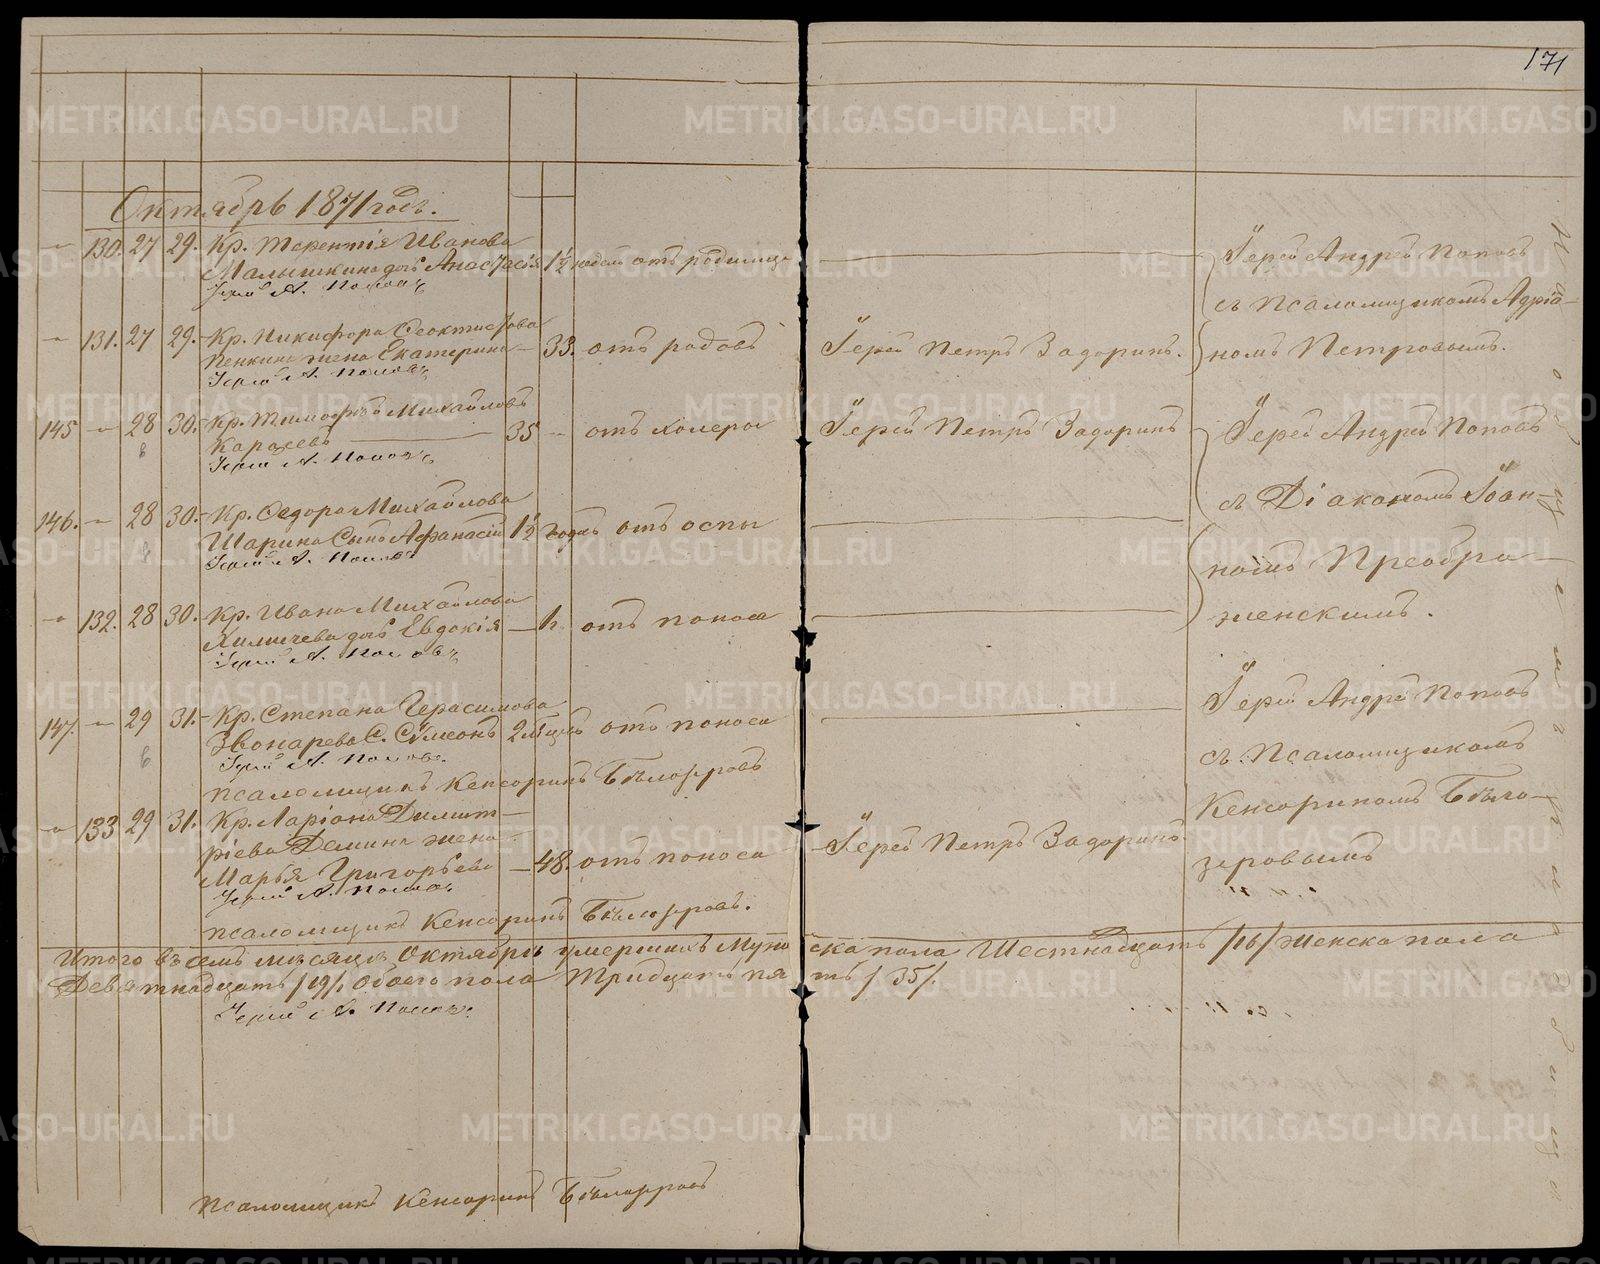 171
Октябрь 1871 годъ.
130. 27 29. Кр. Терентія Иванова
Малышкина дочь Анастасія 1½ недели отъ родимца
Іерей А. Поповъ
Іерей Андрей Поповъ
съ псаломщикомъ Адріа-
131. 27 29. Кр. Никифора Феоктистова
Пенкина жена Екатерина 33. отъ родовъ Іерей Петръ Задоринъ.
номъ Петровымъ.
Іерей А. Поповъ
145 28 30. Кр. Тимофей Михайловъ
Карасевъ 35 отъ холеры Іерей Петръ Задоринъ
Іерей А. Поповъ
Іерей Андрей Поповъ
съ Діакономъ Іоан-
146. 28 30. Кр. Федора Михайлова
Шарина сынъ Афанасій 1½ годъ отъ оспы
Іерей А. Поповъ
номъ Преобра-
женскимъ.
132. 28 30. Кр. Ивана Михайлова
дочь Евдокія отъ поноса
Іерей А. Поповъ
147. 29 31. Кр. Степана Герасимова
Звонарева с. Сѵмеонъ 2 отъ поноса
Іерей А. Поповъ
псаломщикъ Кенсоринъ Бѣлозеровъ
Іерей Андрей Поповъ
съ псаломщикомъ
Кенсориномъ Бѣло-
зеровымъ
133 29 31. Кр. Ларіона Димит-
ріева Демина жена
Марья Григорьева 48. отъ поноса Іерей Петръ Задоринъ
Іерей А. Поповъ
псаломщикъ Кенсоринъ Бѣлозеровъ.
Итого въ семъ мѣсяцѣ Октябрѣ умершихъ Мужеска пола Шестнадцать /16/ Женска пола
Девятнадцать /19/. Обоего пола Тридцать пять /35/.
Іерей А. Поповъ
псаломщикъ Кенсоринъ Бѣлозеровъ
METRIKI.GASO-URAL.RU